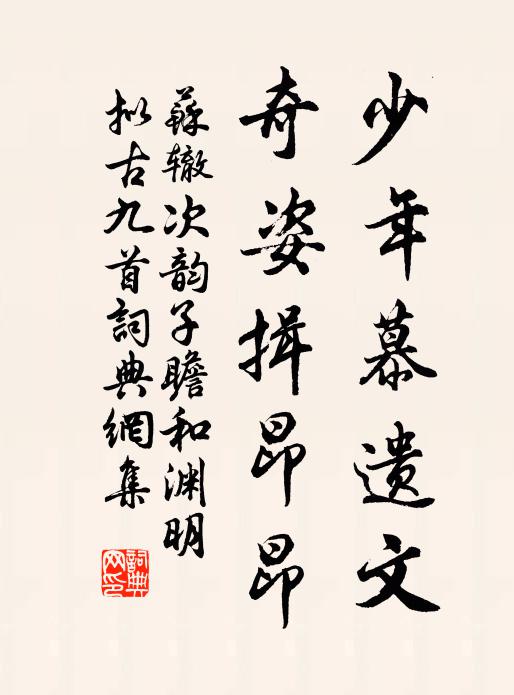 少年慕遗文
奇姿揖昂昂
蘇辙次韵子瞻和渊明
拟古九首詞典網集
詞典
网印